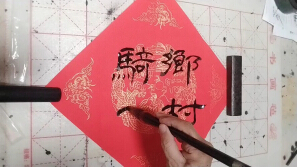 鄉村
騎